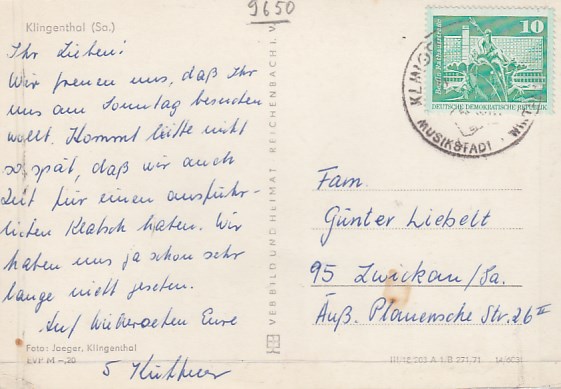 9650
Klingenthal (Sa.)
Ihr Lieben!
Wir freuen uns, daß Ihr
uns am Sonntag besuchen
wollt. Kommt bitte nicht
so spät, daß wir auch
Zeit für einen ausführ-
lichen Klatsch haben. Wir
haben uns ja schon sehr
lange nicht gesehen.
Auf Wiedersehen Eure
5 Küttner
Foto: Jaeger, Klingenthal
EVP M -,20
VEB BILD UND HEIMAT REICHENBACH I. V.
10
DEUTSCHE DEMOKRATISCHE REPUBLIK
MUSIKSTADT
Fam.
Günter Liebelt
95 Zwickau/Sa.
Äuß. Plauensche Str. 26 II
A 1/B 271/71